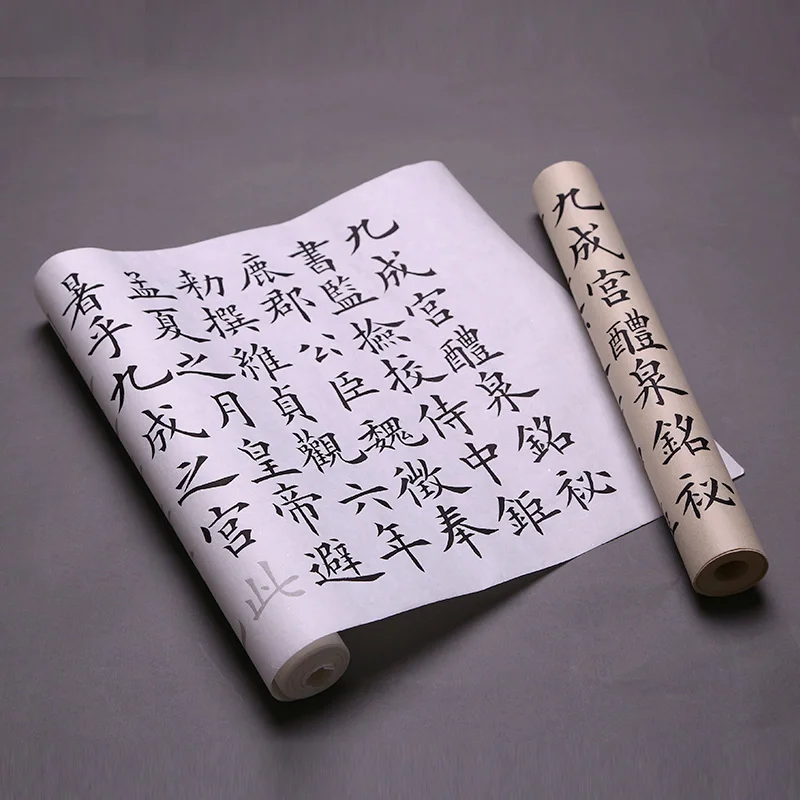 九成宮醴泉銘祕
書監撿挍侍中鉅
鹿郡公臣魏徵奉
勑撰維貞觀六年
孟夏之月皇帝避
暑乎九成之宮此
九成宮醴泉銘祕